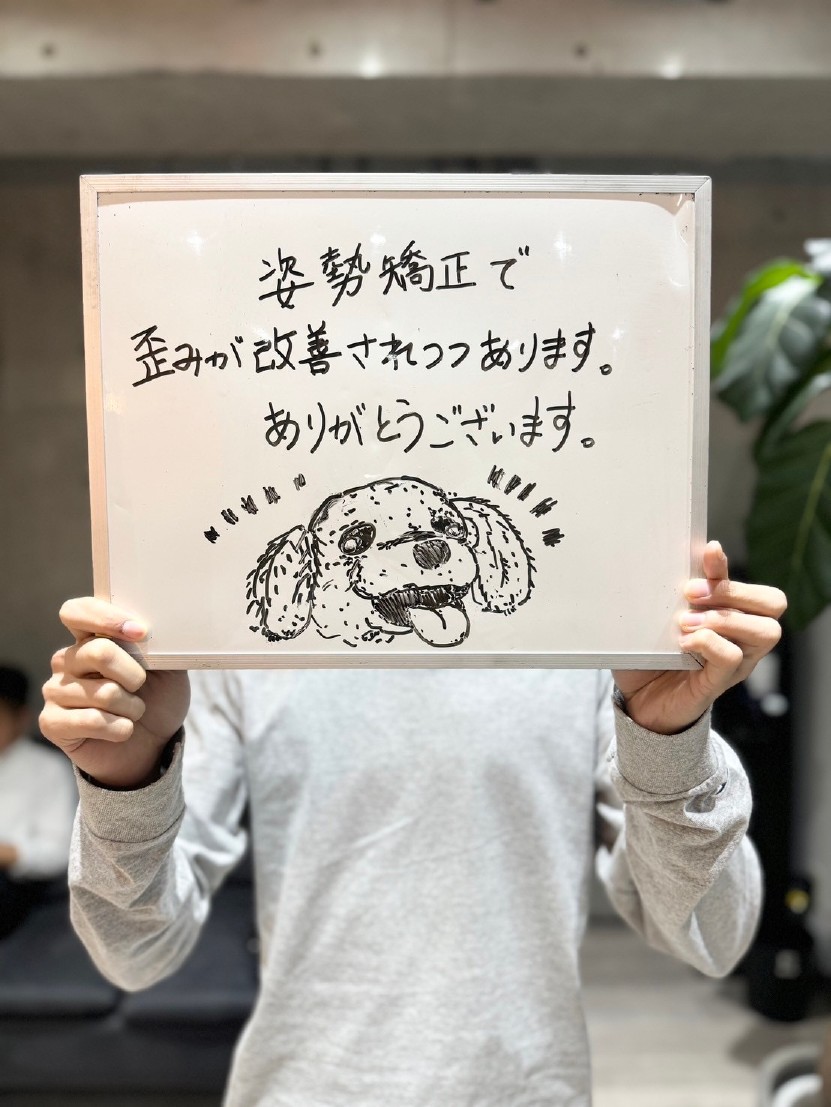 姿勢矯正で
歪みが改善されつつあります。
ありがとうございます。